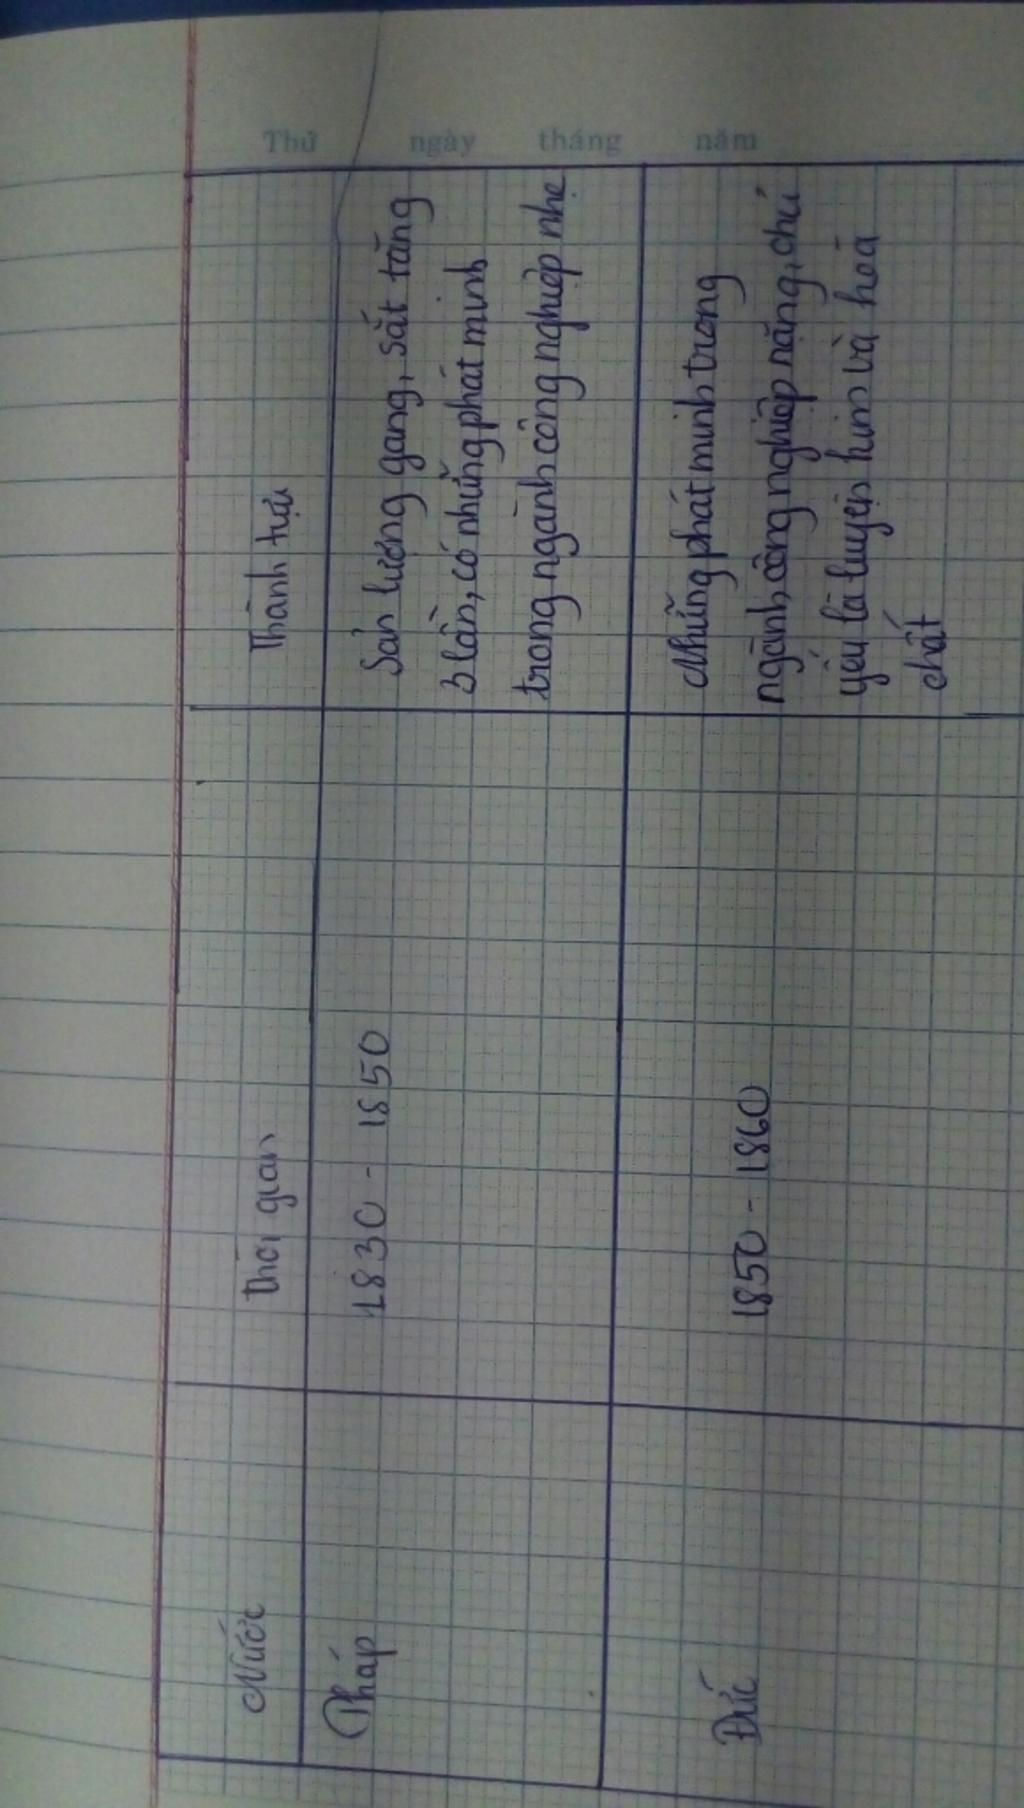 Thứ ngày tháng năm
Nước Thời gian Thành tựu
Pháp 1830 - 1850 Sản lượng gang, sắt tăng
3 lần, có những phát minh
trong ngành công nghiệp nhẹ
Đức 1850 - 1860 Những phát minh trong
ngành công nghiệp nặng, chủ
yếu là luyện kim và hoá
chất